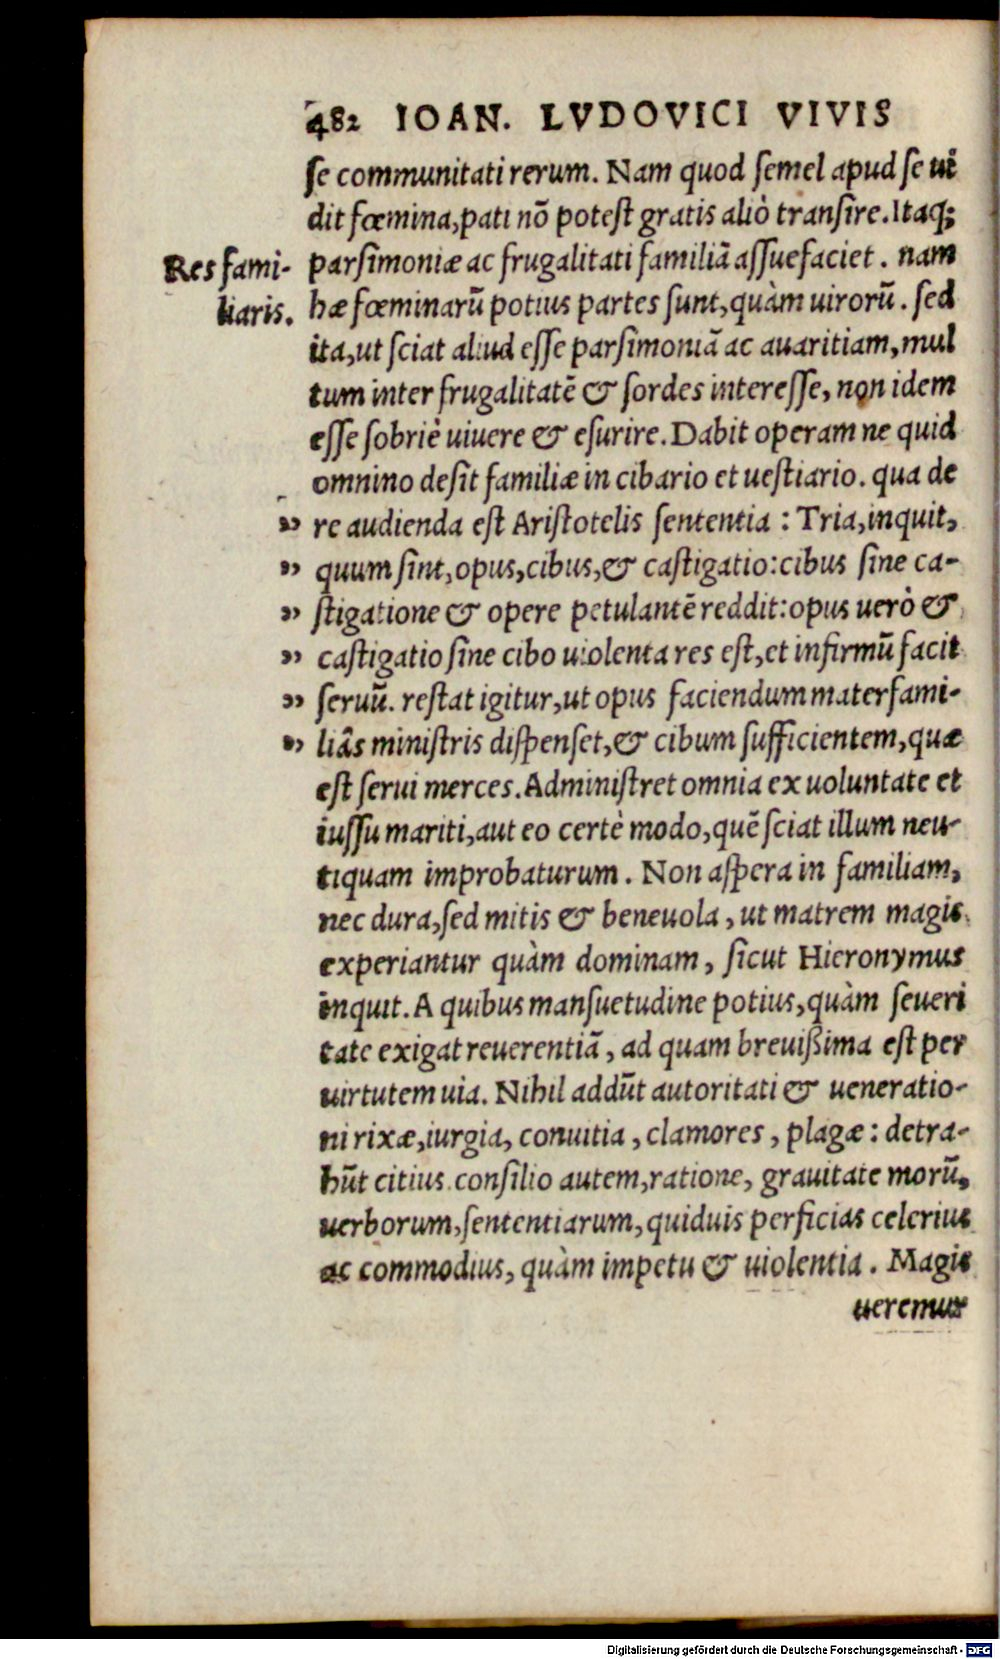 482 IOAN. LVDOVICI VIVIS
se communitati rerum. Nam quod semel apud se ui
dit fœmina, pati nō potest gratis aliò transire. Itaq;
Res fami-
liaris.
parsimoniæ ac frugalitati familiā assuefaciet. nam
hæ fœminarū potius partes sunt, quàm uirorū. sed
ita, ut sciat aliud esse parsimoniā ac auaritiam, mul
tum inter frugalitatē & sordes interesse, non idem
esse sobriè uiuere & esurire. Dabit operam ne quid
omnino desit familiæ in cibario et uestiario. qua de
„ re audienda est Aristotelis sententia : Tria, inquit,
„ quum sint, opus, cibus, & castigatio: cibus sine ca-
„ stigatione & opere petulantē reddit: opus uerò &
„ castigatio sine cibo uiolenta res est, et infirmū facit
„ seruū. restat igitur, ut opus faciendum materfami-
„ liâs ministris dispenset, & cibum sufficientem, quæ
est serui merces. Administret omnia ex uoluntate et
iussu mariti, aut eo certè modo, quē sciat illum neu-
tiquam improbaturum. Non aspera in familiam,
nec dura, sed mitis & beneuola, ut matrem magis
experiantur quàm dominam, sicut Hieronymus
inquit. A quibus mansuetudine potius, quàm seueri
tate exigat reuerentiā, ad quam breuißima est per
uirtutem uia. Nihil addūt autoritati & ueneratio-
ni rixæ, iurgia, conuitia, clamores, plagæ: detra-
hūt citius. consilio autem, ratione, grauitate morū,
uerborum, sententiarum, quiduis perficias celerius
ac commodius, quàm impetu & uiolentia. Magis
ueremur
Digitalisierung gefördert durch die Deutsche Forschungsgemeinschaft - DFG